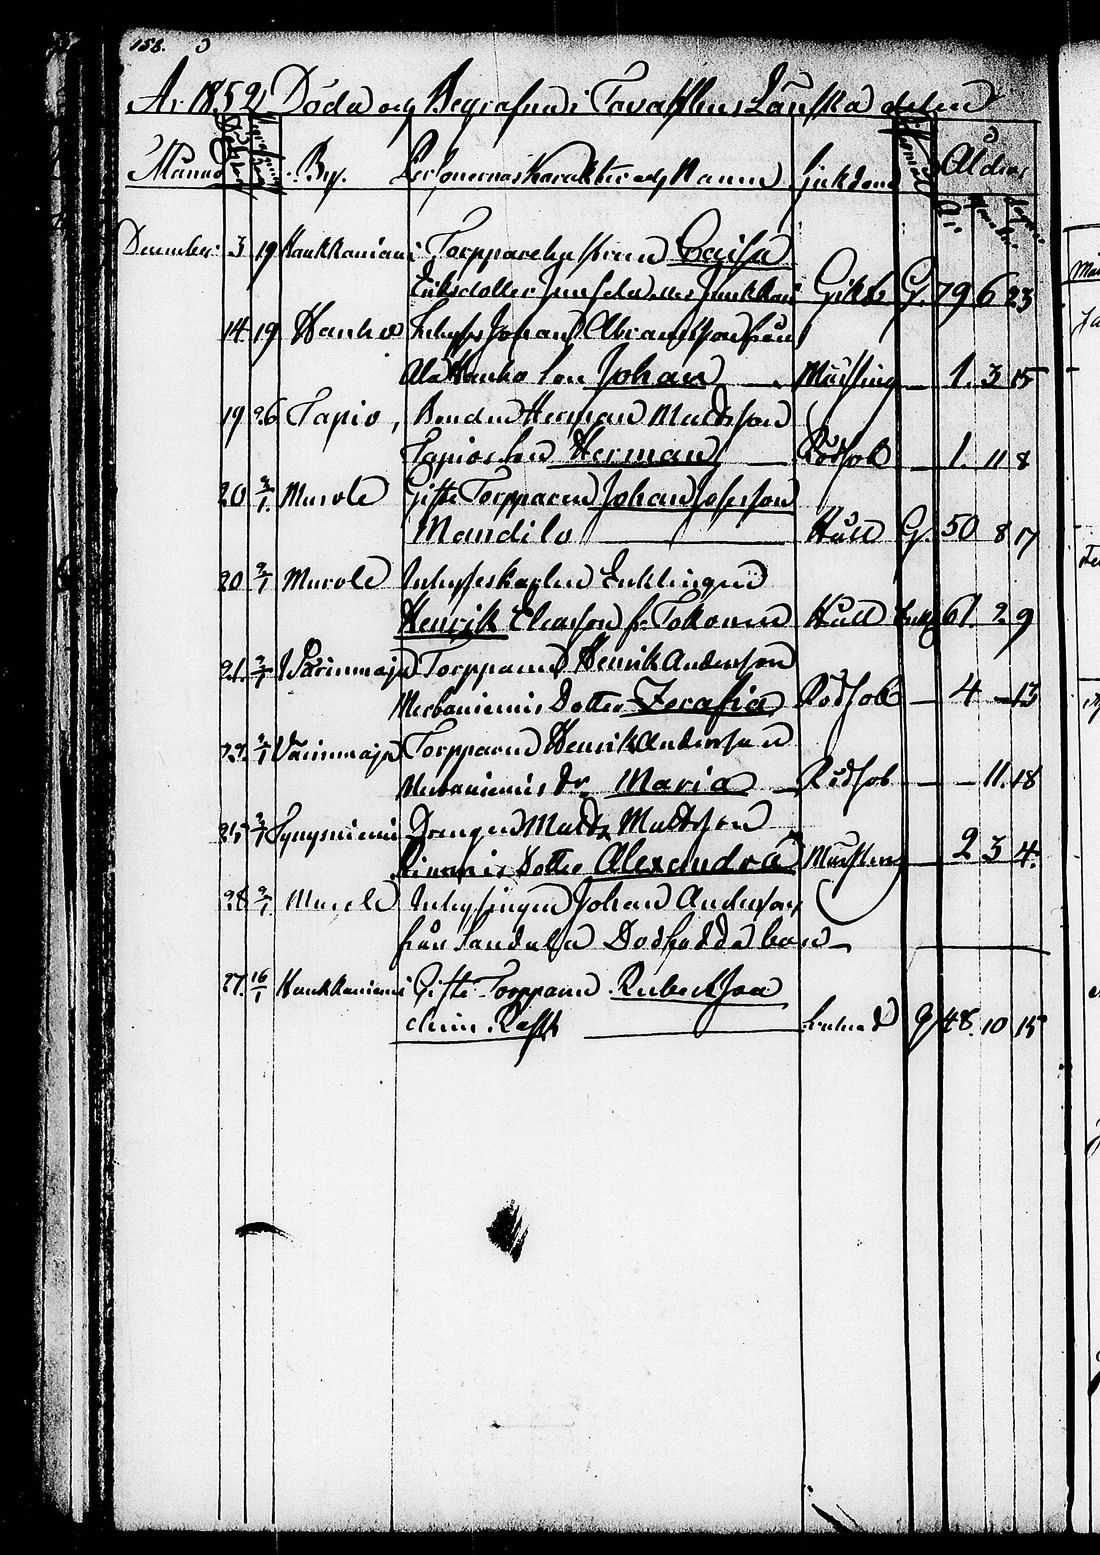 158.
År 1852 Döda och Begrafne i Tavastlens Länska delen
Månad By. Personernas Karakter och Namn Sjukdom Ålder
År
December 3 19 Kaukkaniemi Torpparehustrun Caisa
Eriksdotter Gikt G. 79 6 23
14 19 Hanho Inhyses Johan Abramsson från
Ala Hanho Son Johan Mässling — 1. 3 15
19 26 Tapio, Bonden Herman Mattsson
Tapios Son Herman — Rödsot — 1. 11 8
20 2/1 Murole Gifte Torpparen Johan Josefsson
Mandilo — Håll G. 50 8 17
20 2/1 Murole Inhyseskarlen Enklingen
Henrik Eliasson fr. Håll Enkl 61. 2 9
21. 2/1 Väärinmaja Torpparen Henrik Andersson
Dotter Serafia Rödsot — 4 — 13
22. 2/1 Väärinmaja Torpparen Henrik Andersson
Dr. Maria — Rödsot — — 11. 18
25 2/1 Drengen Matts Mattsson
Dotter Alexandra Mässling — 2 3 4.
28 2/1 Murole Inhysingen Johan Andersson
från Dödfödda barn —
27. 16/1 Kaukkaniemi Gifte Torpparen
48. 10 15